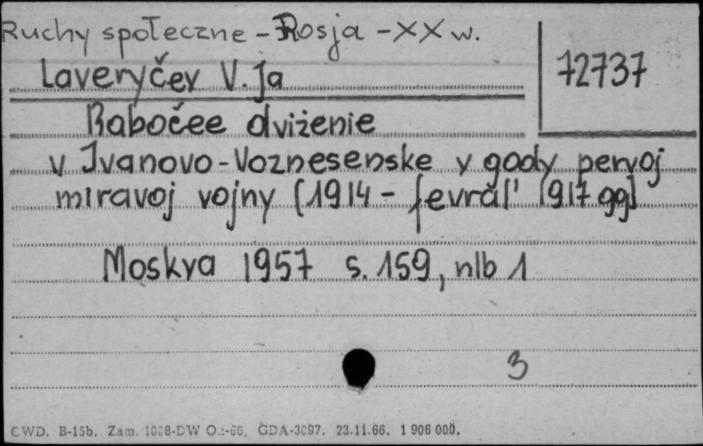 Ruchy społeczne - Rosja - XX w.
Laveryčev V. Ja
72737
Rabočee dviženie
v Ivanovo-Voznesenske v gody pervoj
miravoj vojny (1914 - fevral' 1917 gg)
Moskva 1957 s. 159, nlb 1
3
CWD. B-15b. Zam. 1038-DW O.-66. GDA-3097. 23.11.66. 1 906 000.